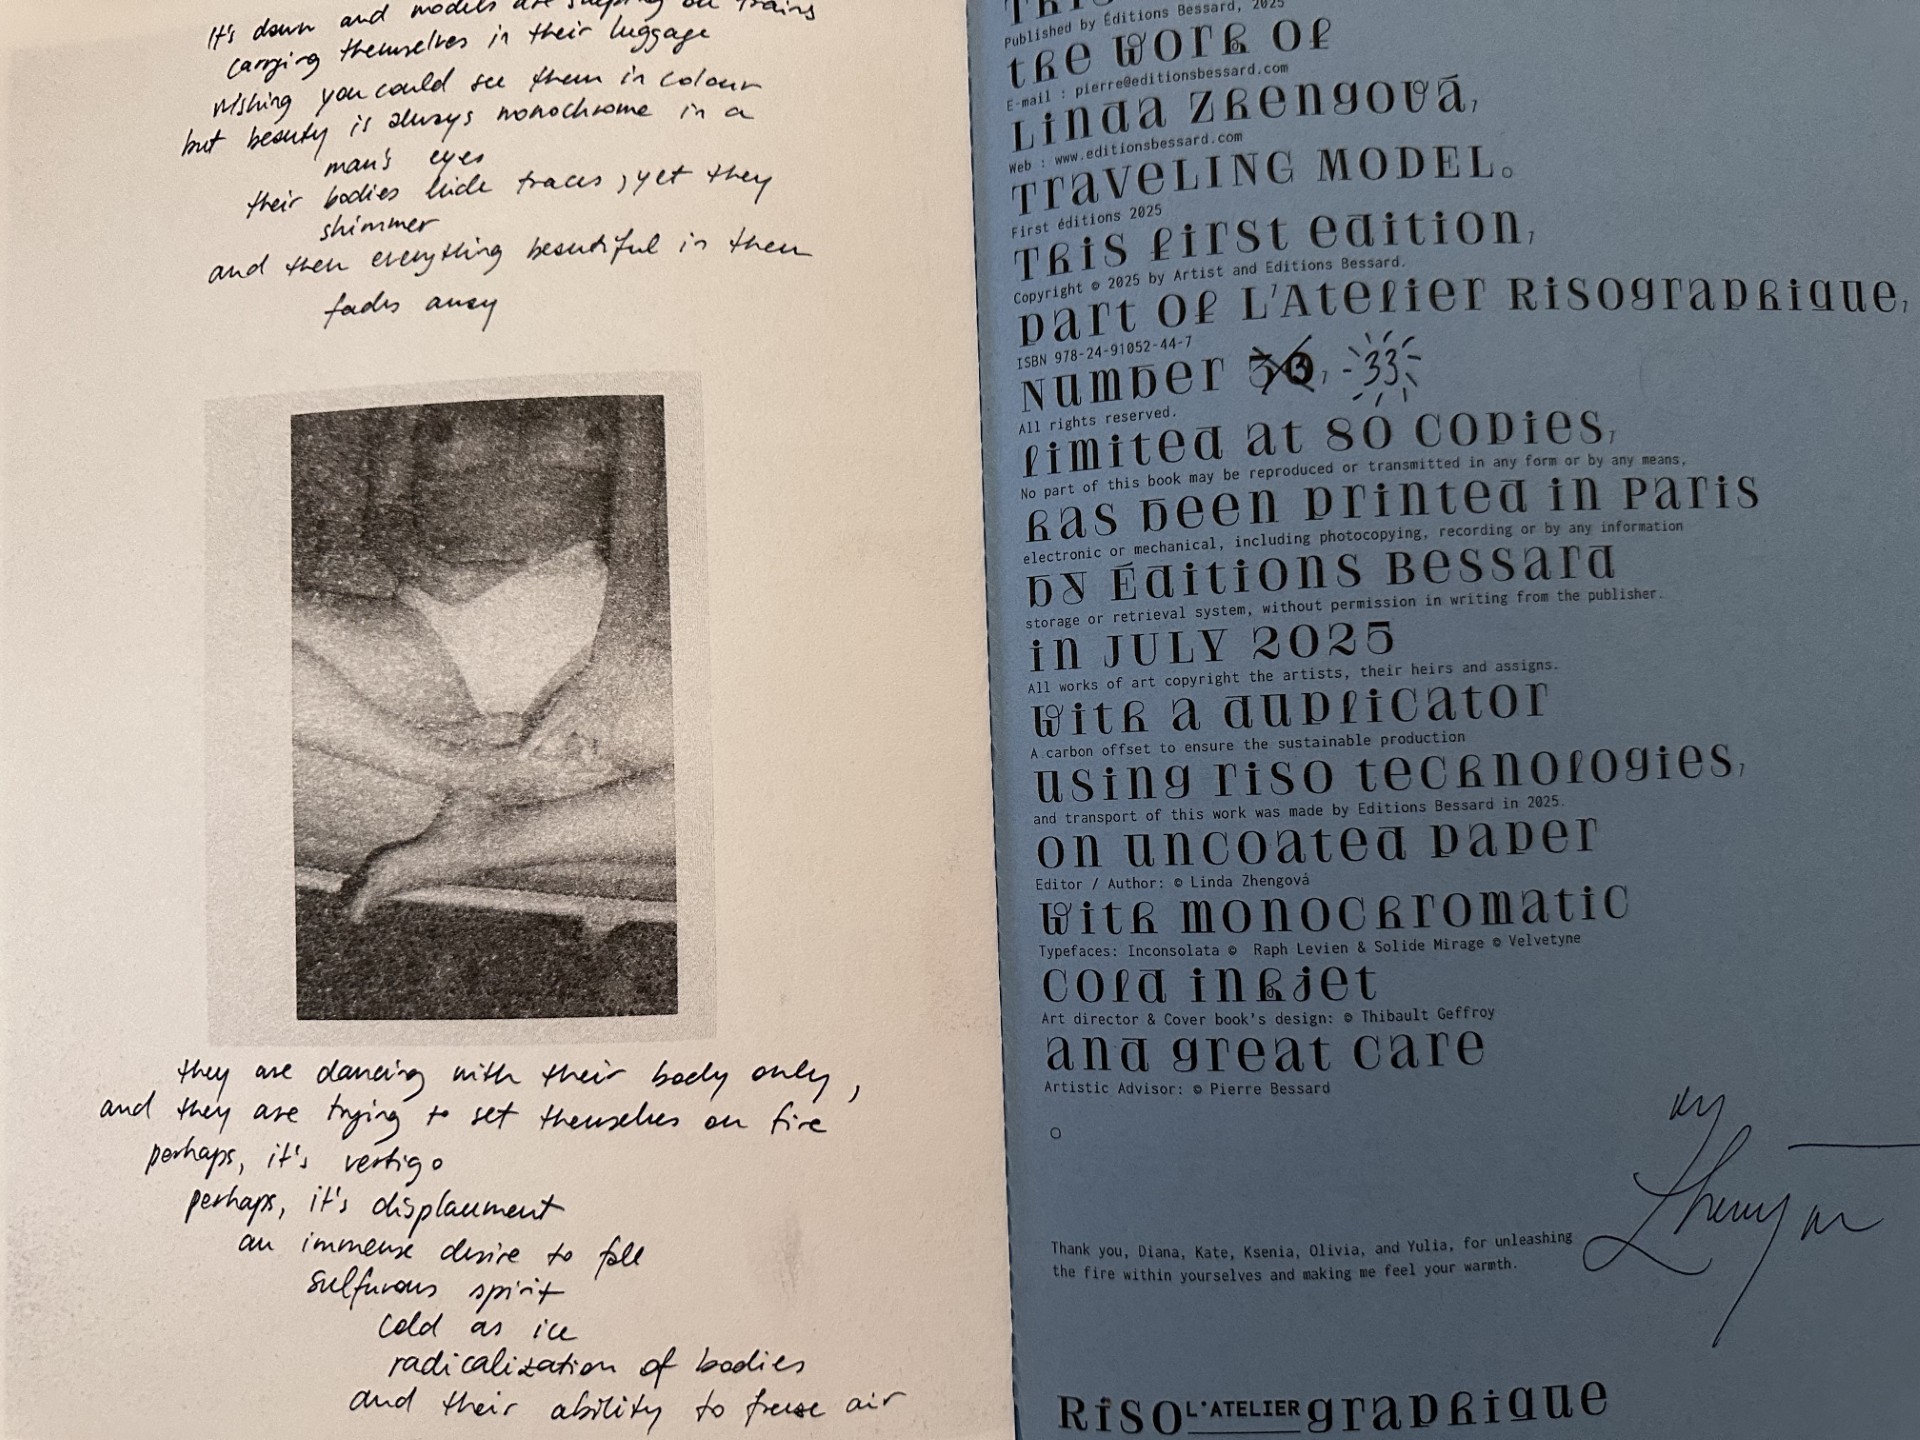 It's dawn and models are sleeping on trains
carrying themselves in their luggage
wishing you could see them in colour
but beauty is always monochrome in a
man's eyes
their bodies hide traces, yet they
shimmer
and then everything beautiful in them
fades away
they are dancing with their body only,
and they are trying to set themselves on fire
perhaps, it's vertigo
perhaps, it's displacement
an immense desire to fall
sulfurous spirit
cold as ice
radicalization of bodies
and their ability to freeze air
This
Published by Éditions Bessard, 2025
the work of
E-mail : pierre@editionsbessard.com
Linda Zhengová,
Web : www.editionsbessard.com
TraveLING MODEL.
First éditions 2025
This first edition,
Copyright © 2025 by Artist and Editions Bessard.
part of L'Atelier Risographique,
ISBN 978-24-91052-44-7
Number 33,
All rights reserved.
limited at 80 copies,
No part of this book may be reproduced or transmitted in any form or by any means,
has been printed in Paris
electronic or mechanical, including photocopying, recording or by any information
by Éditions Bessard
storage or retrieval system, without permission in writing from the publisher.
in JULY 2025
All works of art copyright the artists, their heirs and assigns.
with a duplicator
A carbon offset to ensure the sustainable production
using riso technologies,
and transport of this work was made by Editions Bessard in 2025.
on uncoated paper
Editor / Author: © Linda Zhengovà
with monochromatic
Typefaces: Inconsolata © Raph Levien & Solide Mirage © Velvetyne
cold inkjet
Art director & Cover book's design: © Thibault Geffroy
and great care
Artistic Advisor: © Pierre Bessard
Thank you, Diana, Kate, Ksenia, Olivia, and Yulia, for unleashing
the fire within yourselves and making me feel your warmth.
Riso L'ATELIER graphique